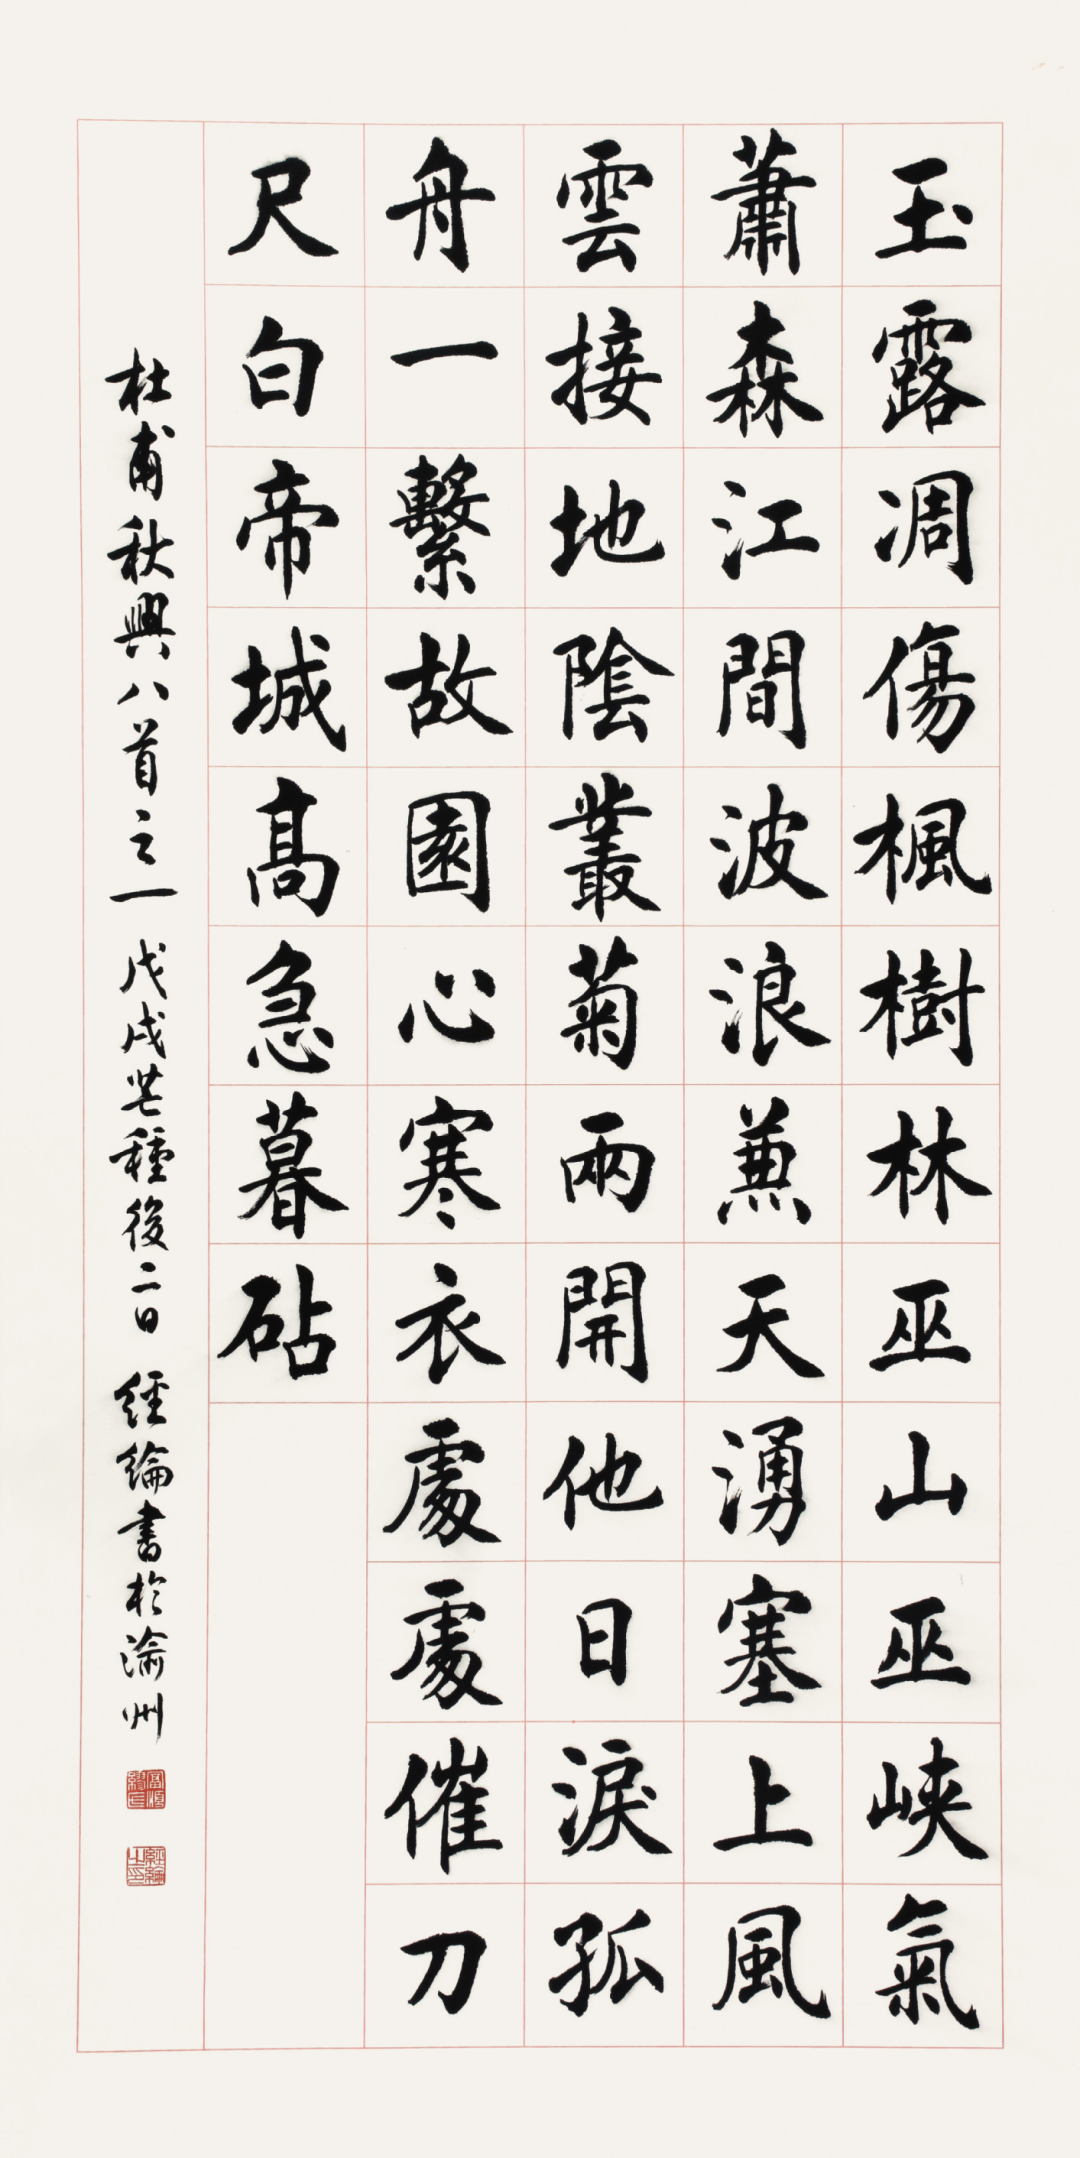 玉露凋傷楓樹林巫山巫峽氣
蕭森江間波浪兼天湧塞上風
雲接地陰叢菊兩開他日淚孤
舟一繫故園心寒衣處處催刀
尺白帝城高急暮砧
杜甫秋興八首之一 戊戌芒種後二日 經綸書於渝州
經綸之印